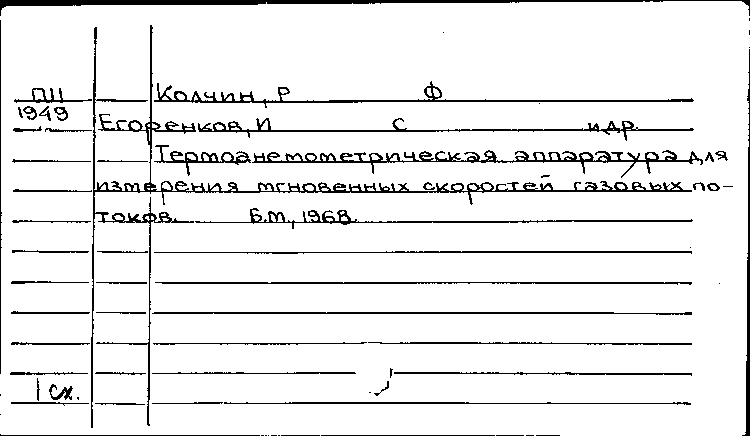 ПII Колчин, Р Ф
1949
Егоренков, И С и др.
Термоанемометрическая аппаратура для
измерения мгновенных скоростей газовых по-
токов. Б.М., 1968.
1 сх.